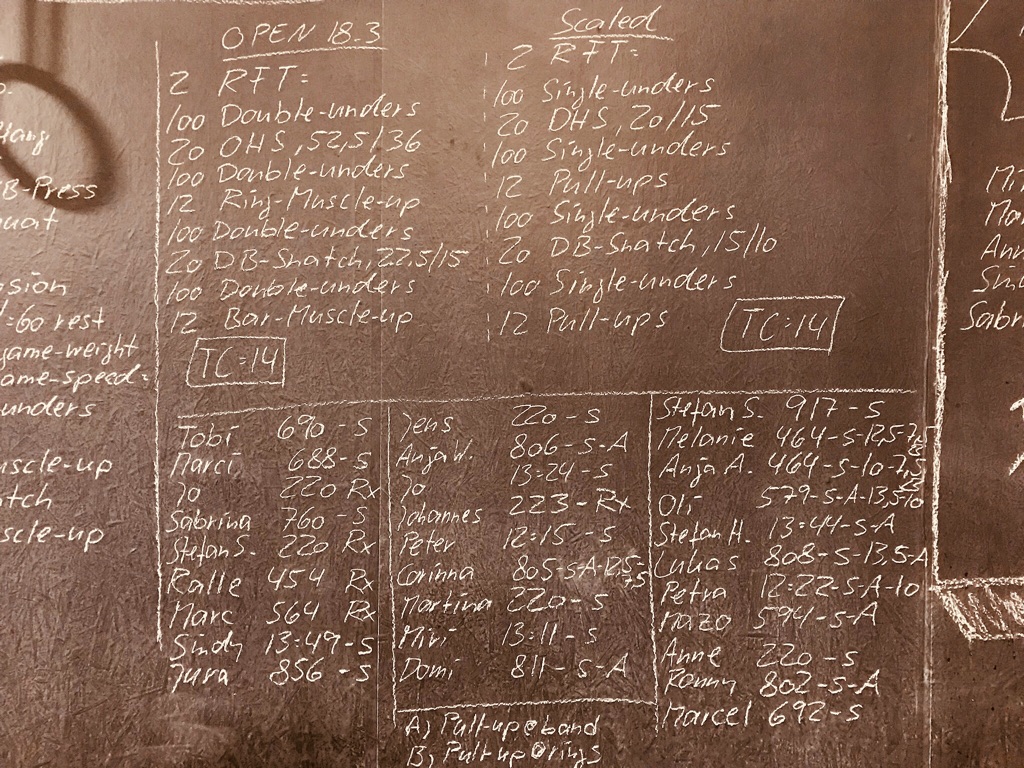 OPEN 18.3
2 RFT:
100 Double-unders
20 OHS, 52,5/36
100 Double-unders
12 Ring-Muscle-up
100 Double-unders
20 DB-Snatch, 22,5/15
100 Double-unders
12 Bar-Muscle-up
TC:14
Scaled
2 RFT:
100 Single-unders
20 OHS, 20/15
100 Single-unders
12 Pull-ups
100 Single-unders
20 DB-Snatch, 15/10
100 Single-unders
12 Pull-ups
TC:14
Tobi 690-S
Marci 688-S
Jo 220 Rx
Sabrina 760-S
Stefan S. 220 Rx
Kalle 454 Rx
Marc 564 Rx
Sindy 13:49-S
Jura 856-S
Jens 220-S
Anja W. 806-S-A
Jo 13:24-S
Johannes 223-Rx
Peter 12:15-S
Corinna 805-S-A-12,5-7,5
Martina 220-S
Miri 13:11-S
Domi 811-S-A
Stefan S. 917-S
Melanie 464-S-12,5-7,5
Anja A. 464-S-10-7,5
Oli 579-S-A-13,5/10
Stefan H. 13:41-S-A
Lukas 808-S-13,5-A
Petra 12:22-S-A-10
Mazo 594-S-A
Anne 220-S
Ronny 802-S-A
Marcel 692-S
A) Pull-up@band
B) Pull-up@rings
Hang
B-Press
uat
sion
:60 rest
game-weight
ame-speed:
unders
uscle-up
tch
scle-up
Mi
Ma
Ann
Sin
Sabr